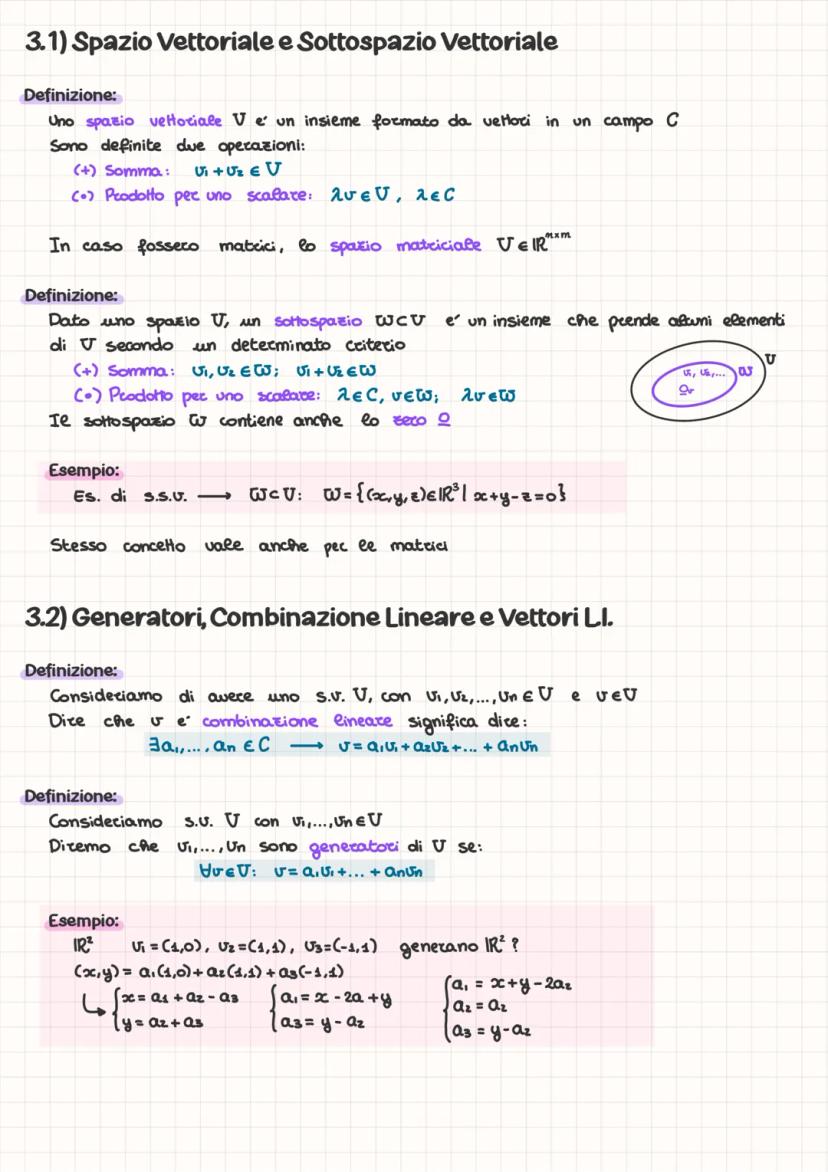 3.1) Spazio Vettoriale e Sottospazio Vettoriale
Definizione:
Uno spazio vettoriale V e' un insieme formato da vettori in un campo C
Sono definite due operazioni:
(+) Somma: v₁ + v₂ ∈ V
(•) Prodotto per uno scalare: λv ∈ V, λ ∈ C
In caso fossero matrici, lo spazio matriciale V ∈ ℝⁿˣᵐ
Definizione:
Dato uno spazio V, un sottospazio W ⊂ V e' un insieme che prende alcuni elementi
di V secondo un determinato criterio
(+) Somma: v₁, v₂ ∈ W; v₁ + v₂ ∈ W
(•) Prodotto per uno scalare: λ ∈ C, v ∈ W; λv ∈ W
Il sottospazio W contiene anche lo zero 0
v₁, v₂, ... W V
0ᵥ
Esempio:
Es. di s.s.v. ⟶ W ⊂ V: W = {(x,y,z) ∈ ℝ³ | x+y-z=0}
Stesso concetto vale anche per le matrici
3.2) Generatori, Combinazione Lineare e Vettori L.I.
Definizione:
Consideriamo di avere uno s.v. V, con v₁, v₂, ..., vₙ ∈ V e v ∈ V
Dire che v e' combinazione lineare significa dire:
∃a₁, ..., aₙ ∈ C ⟶ v = a₁v₁ + a₂v₂ + ... + aₙvₙ
Definizione:
Consideriamo s.v. V con v₁, ..., vₙ ∈ V
Diremo che v₁, ..., vₙ sono generatori di V se:
∀v ∈ V: v = a₁v₁ + ... + aₙvₙ
Esempio:
ℝ² v₁ = (1,0), v₂ = (1,1), v₃ = (-1,1) generano ℝ²?
(x,y) = a₁(1,0) + a₂(1,1) + a₃(-1,1)
{x = a₁ + a₂ - a₃ {a₁ = x - 2a + y {a₁ = x + y - 2a₂
y = a₂ + a₃ a₃ = y - a₂ a₂ = a₂
a₃ = y - a₂